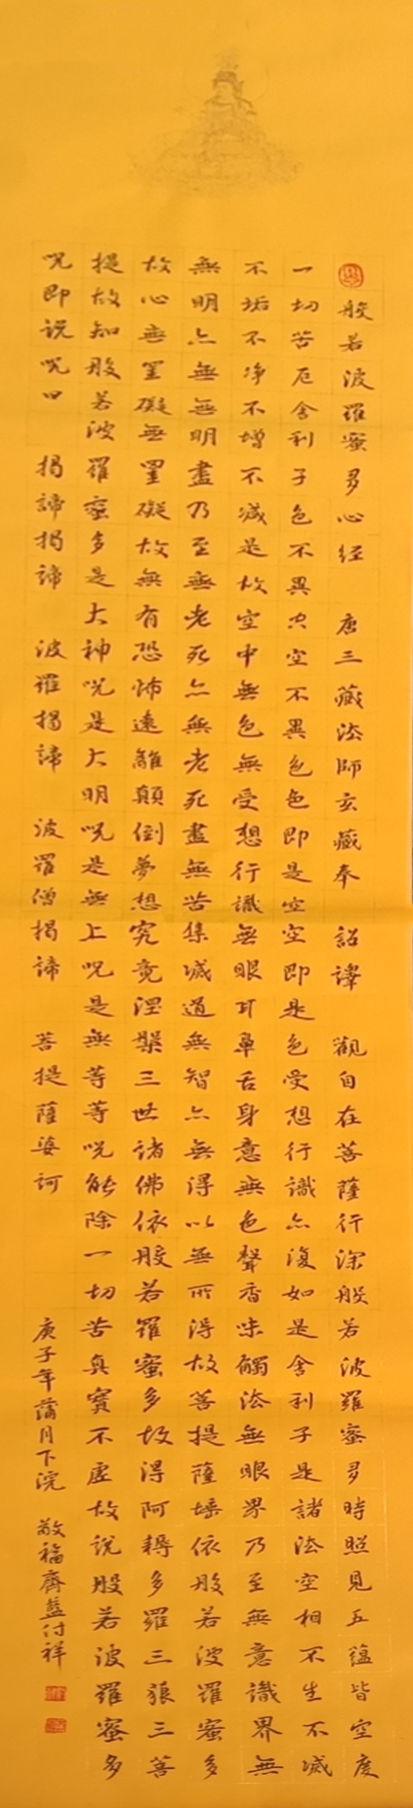 般若波羅蜜多心經 唐三藏法師玄藏奉 詔譯 觀自在菩薩行深般若波羅蜜多時照見五蘊皆空度
一切苦厄舍利子色不異空空不異色色即是空空即是色受想行識亦復如是舍利子是諸法空相不生不滅
不垢不净不增不減是故空中無色無受想行識無眼耳鼻舌身意無色聲香味觸法無眼界乃至無意識界無
無明亦無無明盡乃至無老死亦無老死盡無苦集滅道無智亦無得以無所得故菩提薩埵依般若波羅蜜多
故心無罣礙無罣礙故無有恐怖遠離顛倒夢想究竟涅槃三世諸佛依般若羅蜜多故得阿耨多羅三藐三菩
提故知般若波羅蜜多是大神呪是大明呪是無上呪是無等等呪能除一切苦真實不虛故說般若波羅蜜多
呪即說呪曰 揭諦揭諦 波羅揭諦 波羅僧揭諦 菩提薩婆訶 庚子年蒲月下浣 敬福齋藍付祥